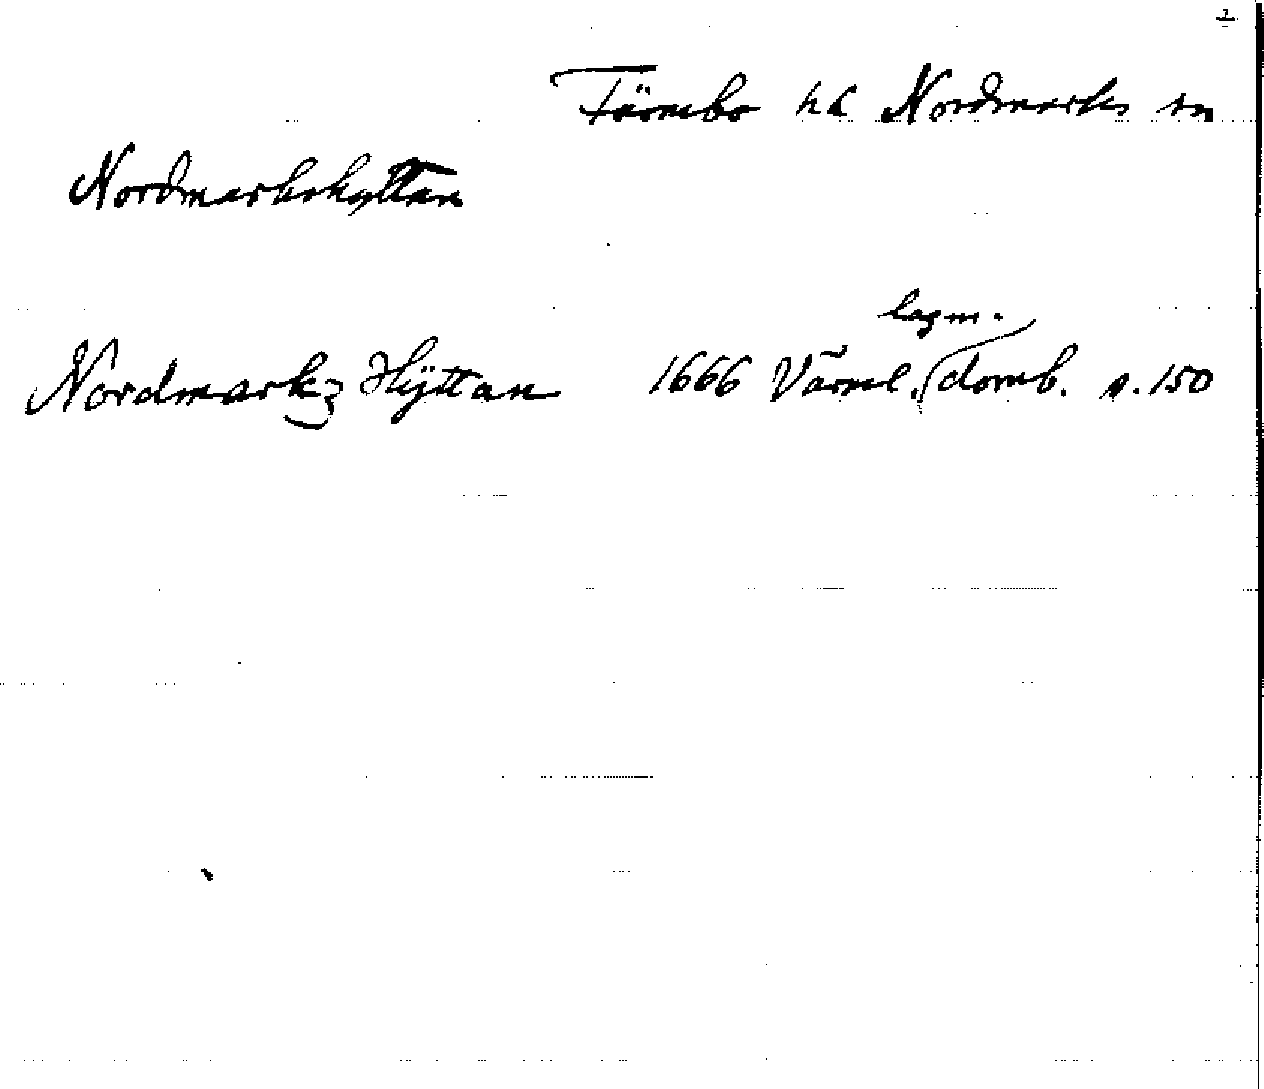 2
Färnebo hd Nordmarks sn
Nordmarkshyttan
lagm.
Nordmarkz Hÿttan 1666 Värml. domb. s. 150